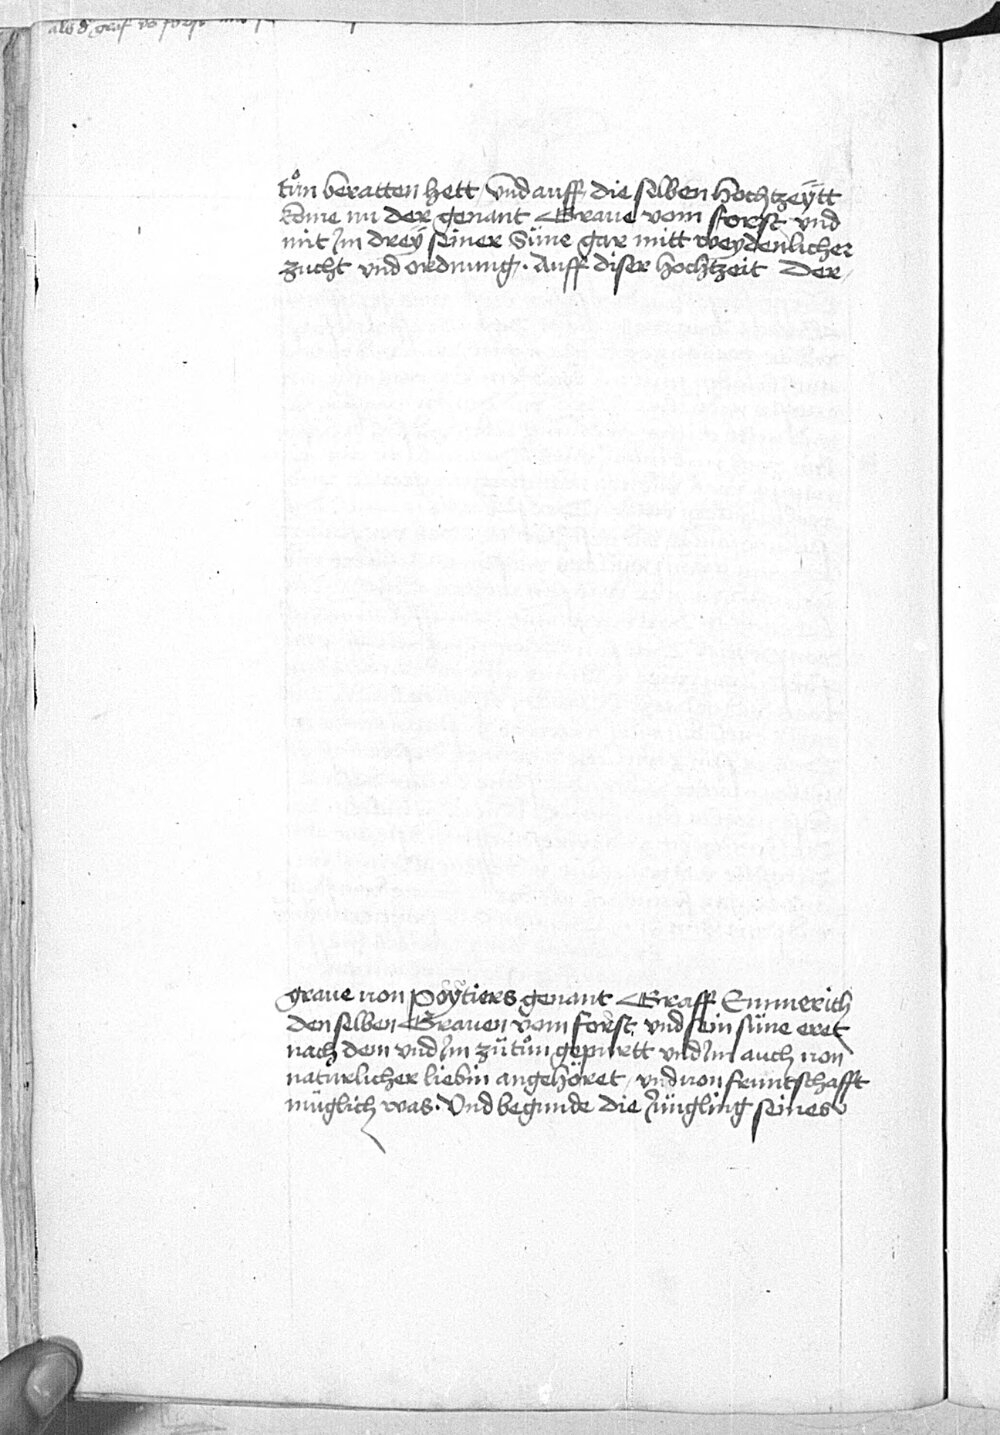 als d graf vo forst
tůn beratten hett / vnd auff die selben hochtzeÿtt
kome nu der genant Graue vom forst vnd
mit Jm dreÿ seiner Süne gar mitt weydenlicher
zucht vnd ordnung. Auff diser hochtzeit Der /
graue von Poÿtiers genant Graff Emmerich
den selben Grauen vom forst vnd sein süne eret
nach dem vnd Jm zü tůn gepurtt vnd Jm auch von
natůrlicher liebin angehöret / vnd von fruntschafft
müglich was. Vnd begunde die Jüngling seines